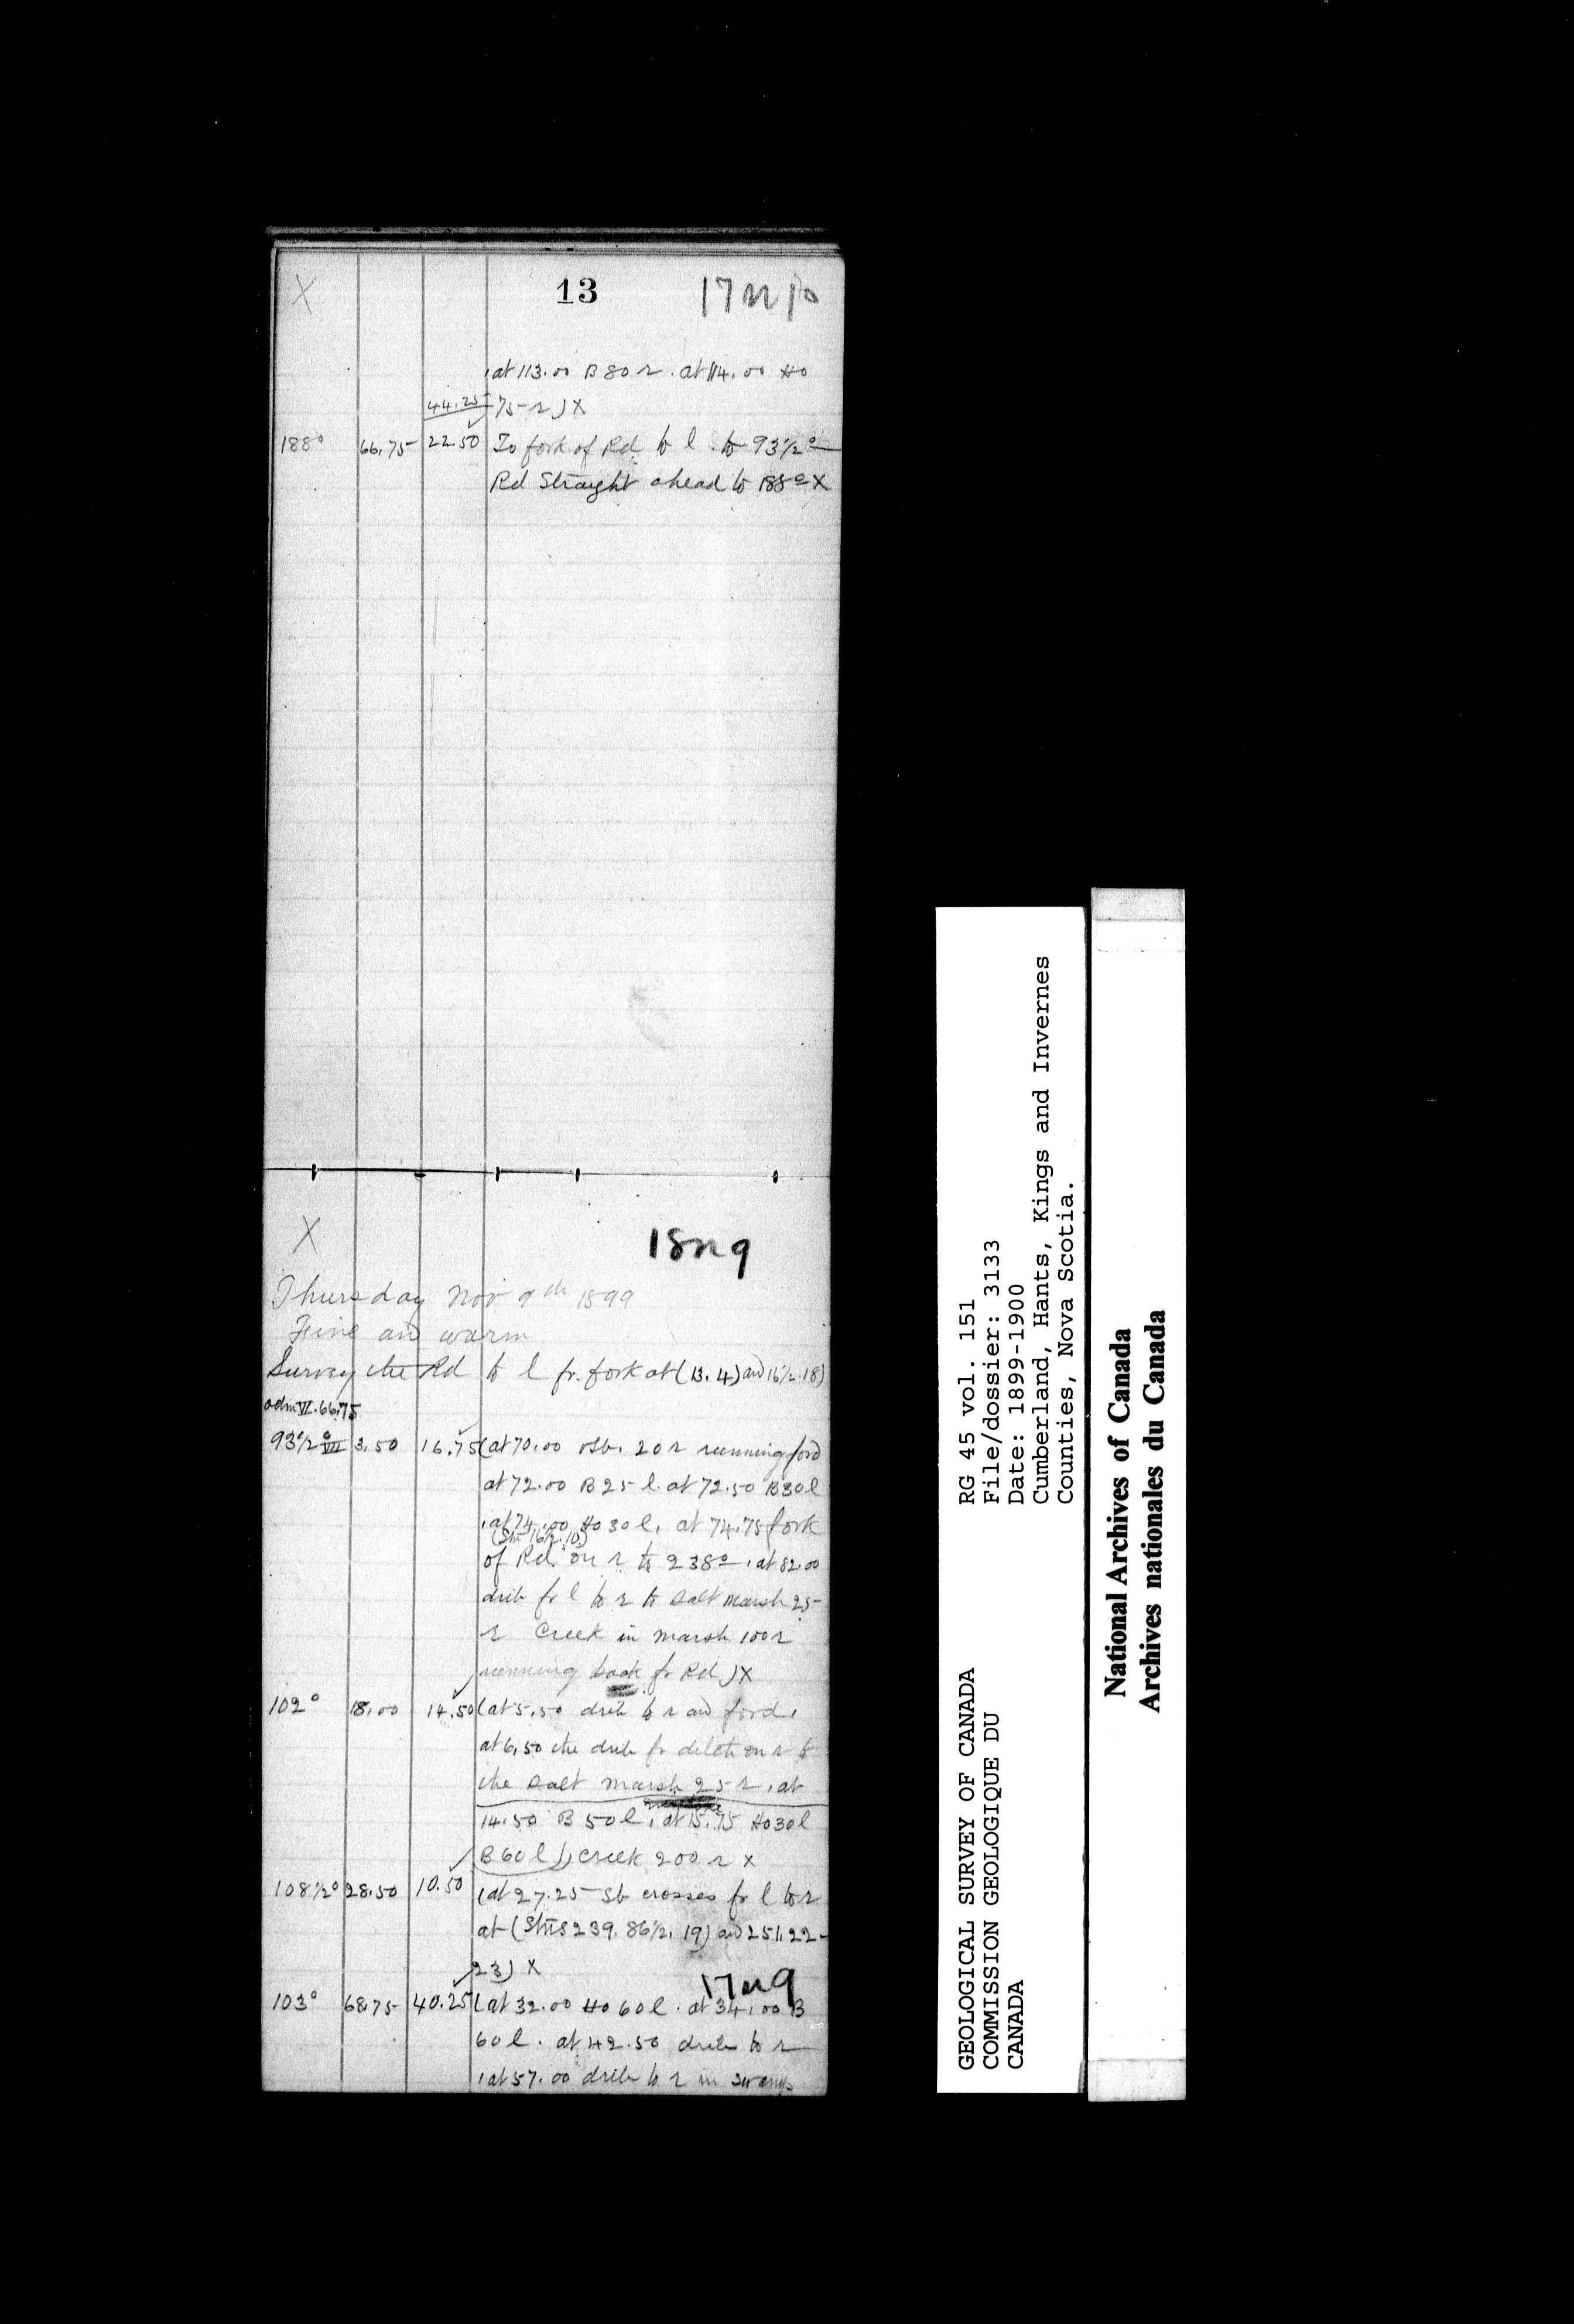 X 13 17 n 10
(at 113.00 B 80 r. at 114.00 Ho
44.25 75 r) X
188° 66.75 22.50 To fork of Rd to l to 93½°
Rd Straight ahead to 188° X
X 18 n 9
Thursday Nov 9th 1899
Fine and warm
Survey the Rd to l fr. fork at (13.4) and 16½.18)
odm VI. 66.75
93½° VII 3.50 16.75 (at 70.00 20 r running
at 72.00 B 25 l. at 72.50 B 30 l
at 74.00 Ho 30 l. at 74.75 fork
(Stn 16½.10)
of Rd on r to 238°. at 82.00
fr l to r to Salt Marsh 25
r Creek in marsh 100 r
running back fr Rd) X
102° 18.00 14.50 (at 5.50 to r and
at 6.50 the fr on r to
the Salt marsh 25 r. at
14.50 B 50 l. at 15.75 Ho 30 l
B 60 l)) Creek 200 r X
108½° 28.50 10.50 (at 27.25 Sb crosses fr l to r
at (Stns 239. 86½. 19) and 251. 22-
23) X
17 n 9
103° 68.75 40.25 (at 32.00 Ho 60 l. at 34.00 B
60 l. at 42.50 to r
at 57.00 to r in swamp
GEOLOGICAL SURVEY OF CANADA
COMMISSION GEOLOGIQUE DU
CANADA
RG 45 vol. 151
File/dossier: 3133
Date: 1899-1900
Cumberland, Hants, Kings and Invernes
Counties, Nova Scotia.
National Archives of Canada
Archives nationales du Canada